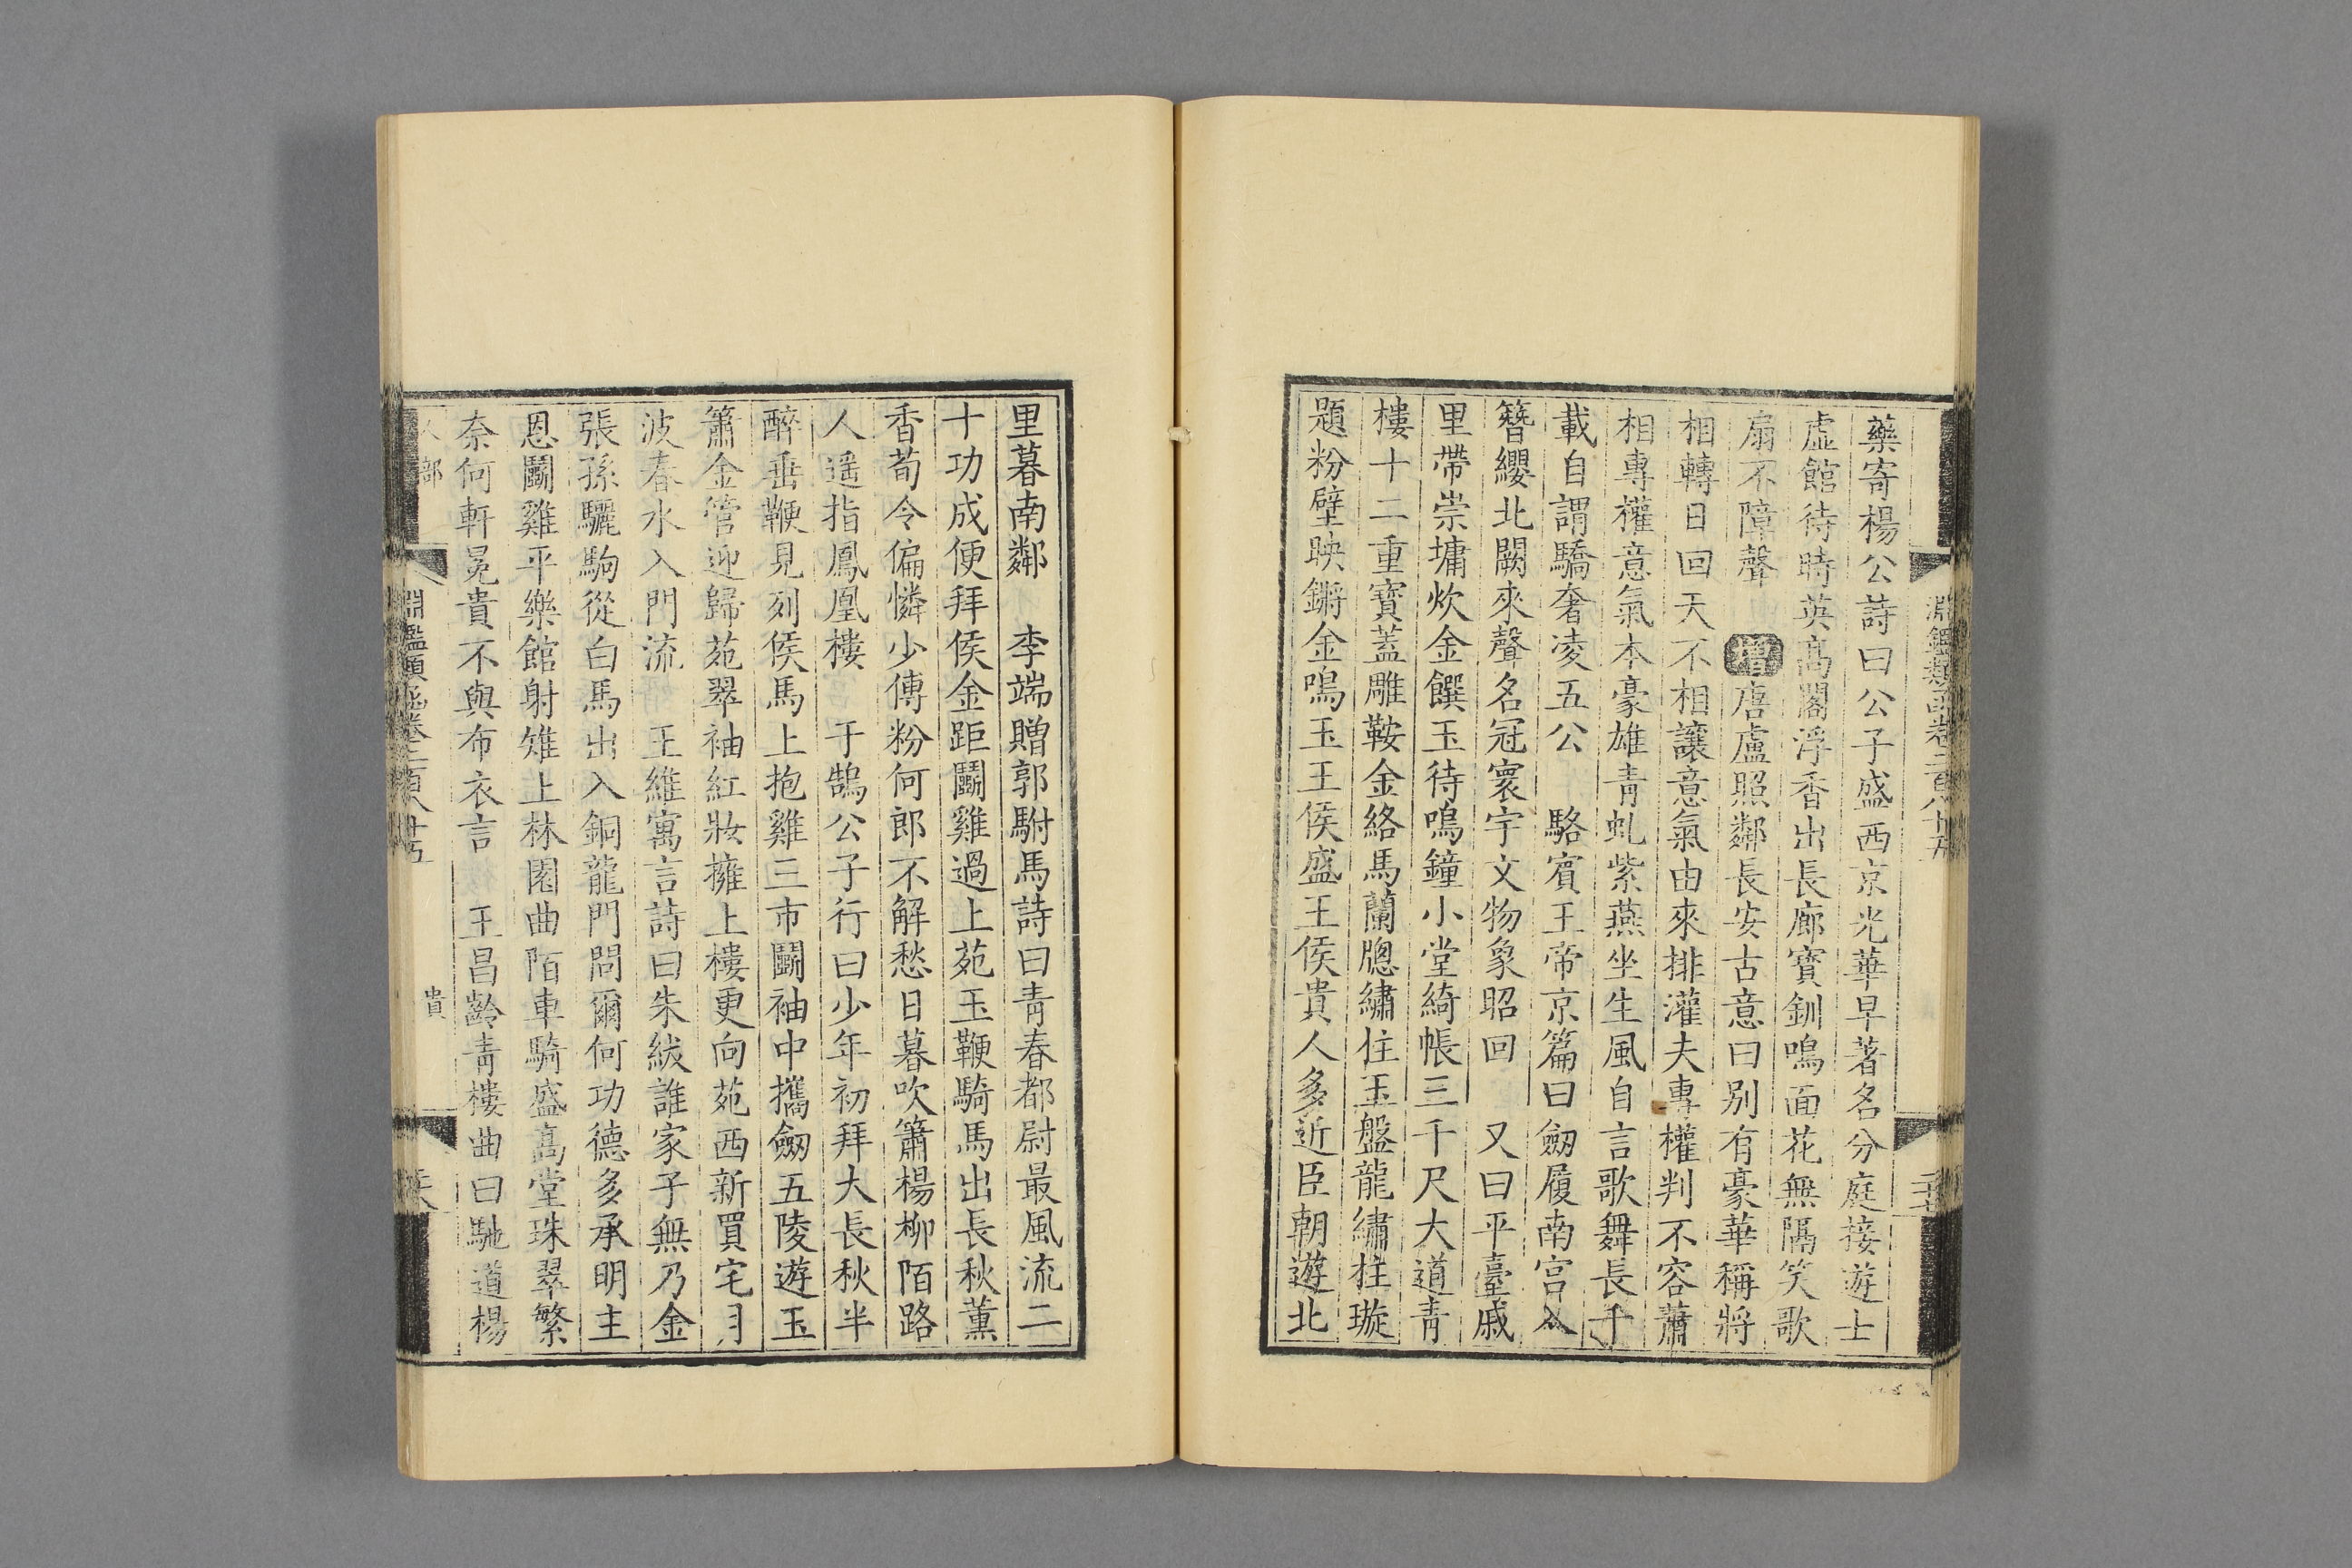 藥寄楊公詩曰公子盛西京光華早著名分庭接遊士
虛館待時英高閣浮香出長廊寶釧鳴面花無隔笑歌
扇不障聲 增唐盧照鄰長安古意曰别有豪華稱將
相轉日回天不相讓意氣由來排灌夫專權判不容蕭
相專權意氣本豪雄青虬紫燕坐生風自言歌舞長千
載自謂驕奢凌五公 駱賓王帝京篇曰劒履南宫入
簪纓北闕來聲名冠寰宇文物象昭回 又曰平臺戚
里帶崇墉炊金饌玉待鳴鐘小堂綺帳三千尺大道青
樓十二重寶蓋雕鞍金絡馬蘭牕繡住玉盤龍繡柱璇
題粉壁映鏘金鳴玉王侯盛王侯貴人多近臣朝遊北
里暮南鄰 李端贈郭駙馬詩曰青春都尉最風流二
十功成便拜侯金距鬭雞過上苑玉鞭騎馬出長秋薰
香荀令偏憐少傅粉何郎不解愁日暮吹簫楊柳陌路
人遥指鳳凰樓 于鵠公子行曰少年初拜大長秋半
醉垂鞭見列侯馬上抱雞三市鬭袖中攜劒五陵遊玉
簫金管迎歸苑翠袖紅妝擁上樓更向苑西新買宅月
波春水入門流 王維寓言詩曰朱紱誰家子無乃金
張孫驪駒從白馬出入銅龍門問爾何功德多承明主
恩鬭雞平樂館射雉上林園曲陌車騎盛高堂珠翠繁
奈何軒冕貴不與布衣言 王昌齡青樓曲曰馳道楊
淵鑑類函卷二百八十五
貴